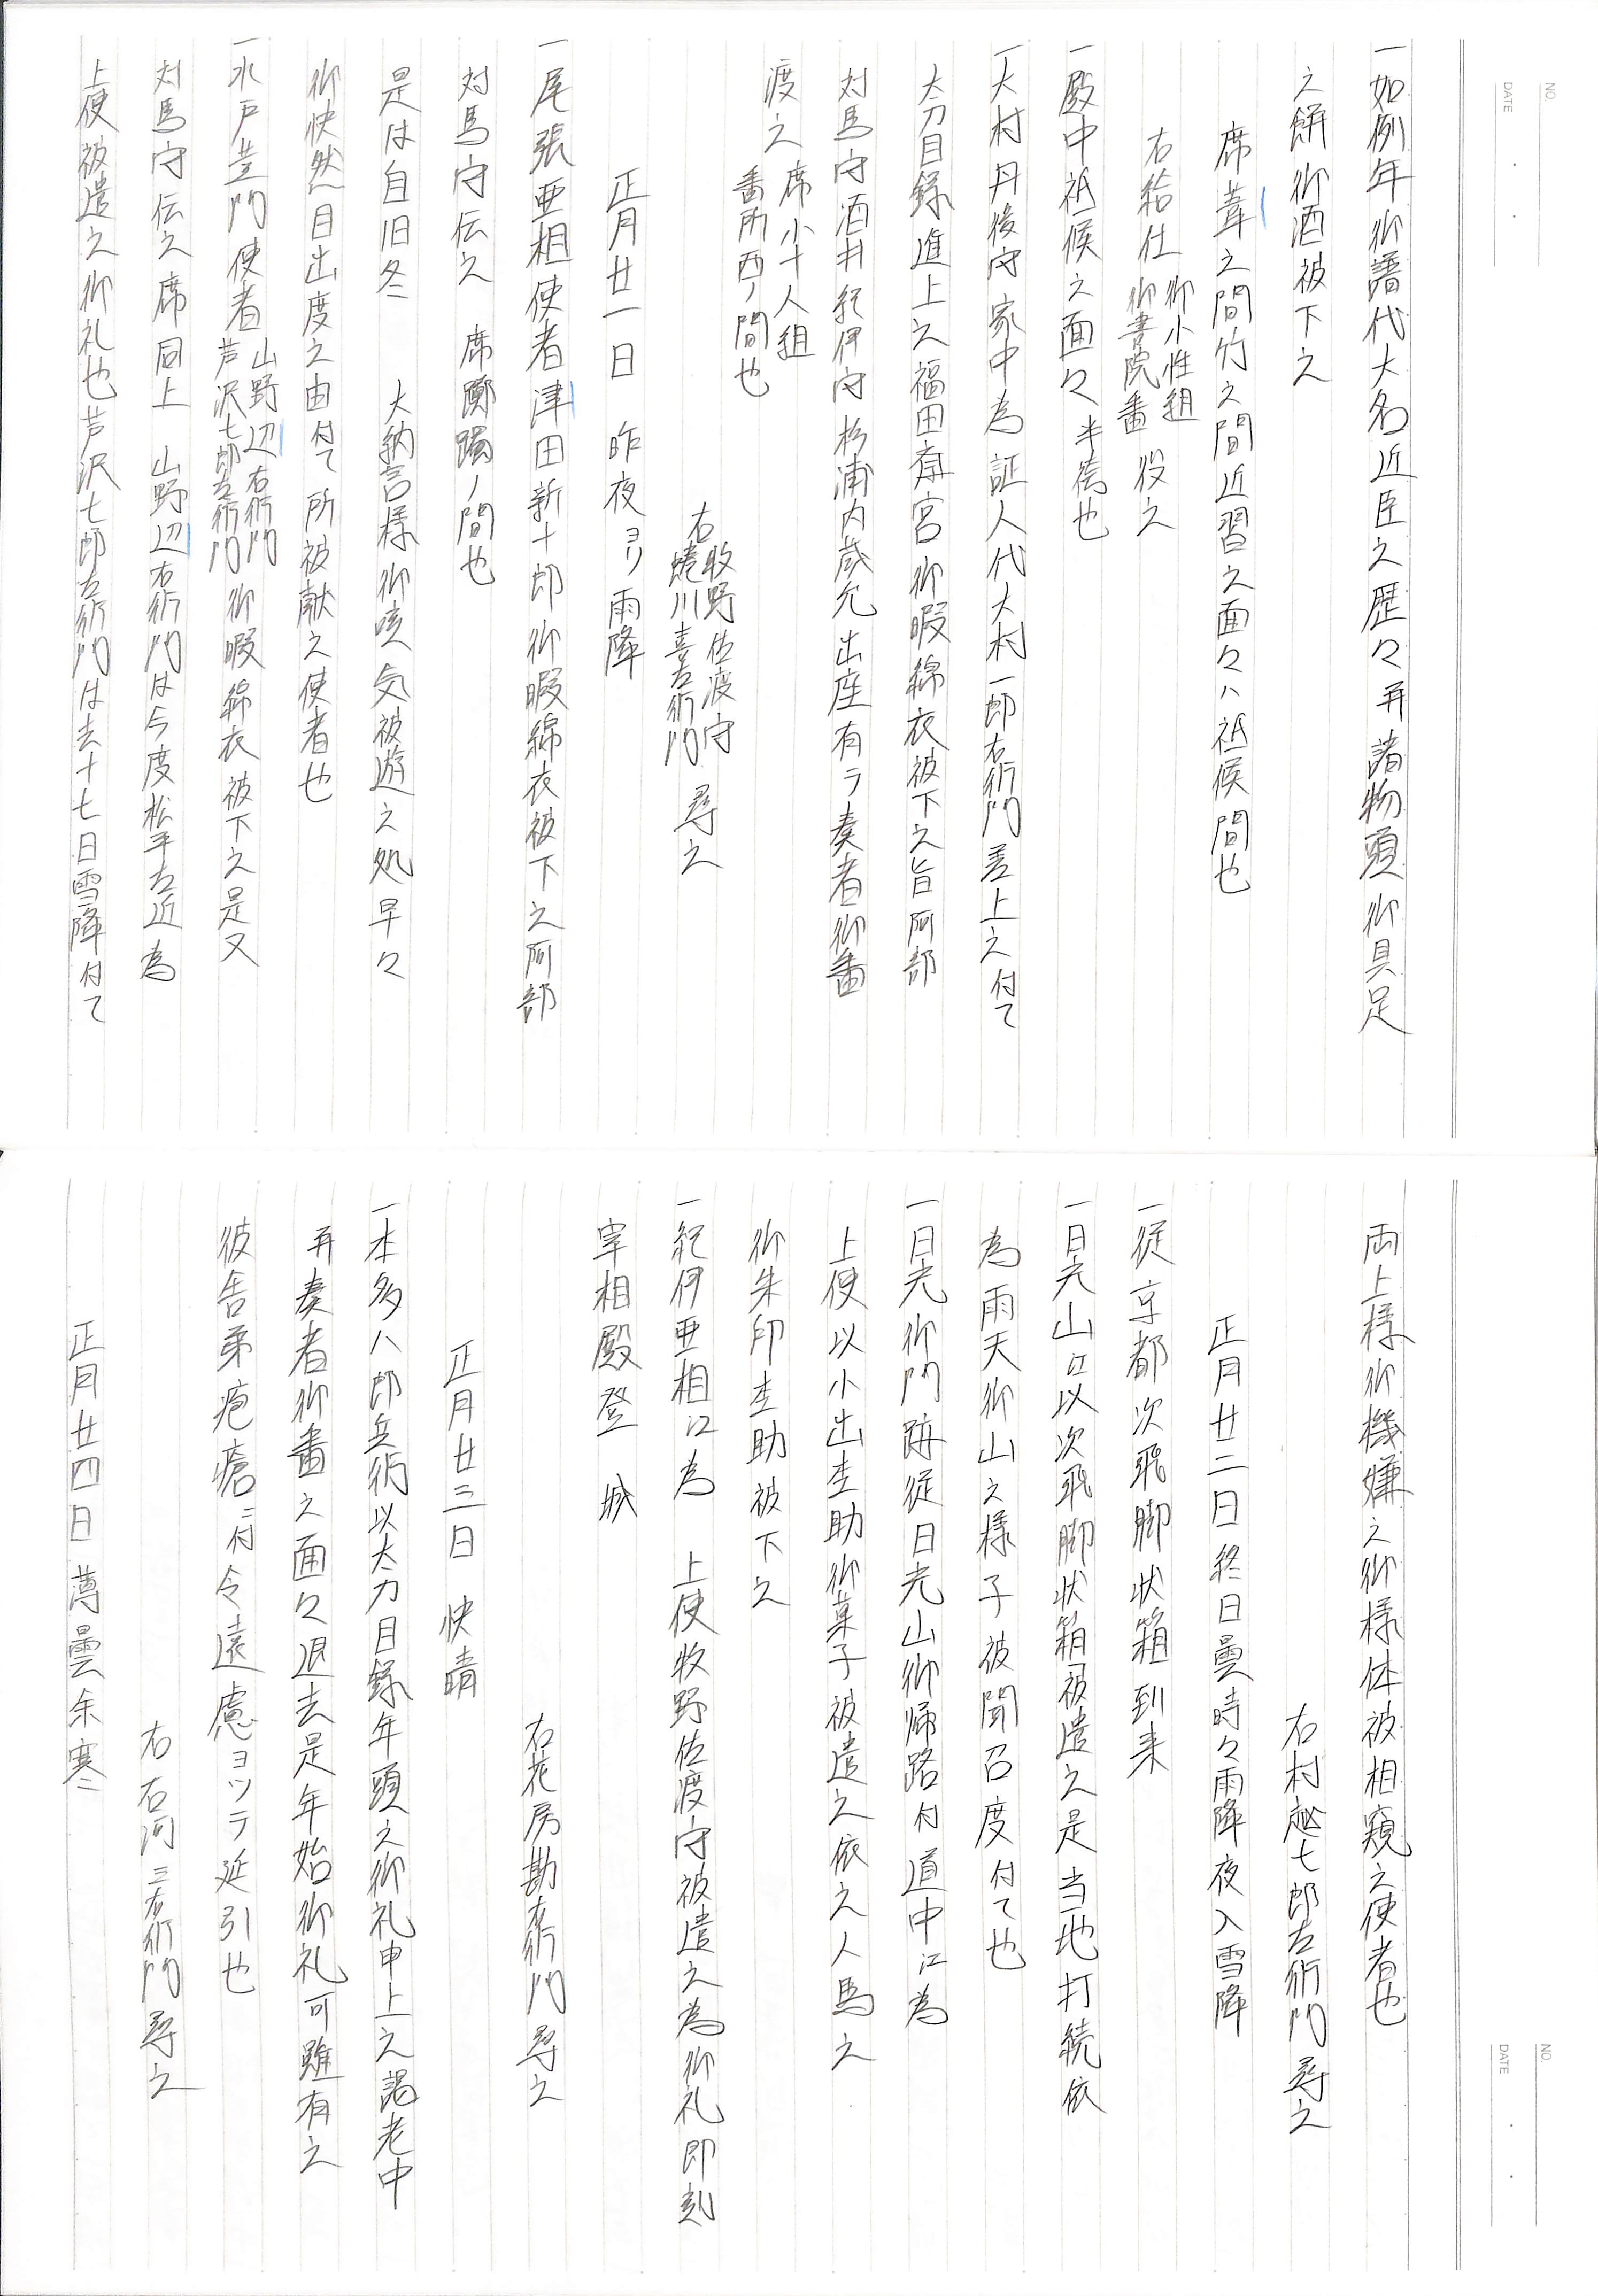 NO.
DATE
一如例年御譜代大名近臣之歴々并諸物頭御具足
之餅御酒被下之
席葦之間竹之間近習之面々ハ祗候間也
右給仕 御小性組 御書院番 役之
一殿中祗候之面々半袴也
一大村丹後守家中為証人代大村一郎右衛門差上之付て
太刀目録進上之福田宮御暇綿衣被下之旨阿部
対馬守酒井紀伊守杉浦内蔵允出座有テ奏者御番
渡之 席小十人組 番所西ノ間也
右 牧野佐渡守 蜷川喜左衛門 尋之
正月廿一日 昨夜ヨリ雨降
一尾張亜相使者津田新十郎御暇綿衣被下之阿部
対馬守伝之 席躑躅ノ間也
是は自旧冬 大納言様御咳気被遊之処早々
御快然目出度之由付て所被献之使者也
一水戸黄門使者 山野辺右衛門 芦沢七郎左衛門 御暇綿衣被下之是又
対馬守伝之席同上 山野辺右衛門は今度松平右近為
上使被遣之御礼也芦沢七郎左衛門は去十七日雪降付て
NO.
DATE
両上様御機嫌之御様体被相窺之使者也
右村越七郎左衛門尋之
正月廿二日終日曇時々雨降夜入雪降
一従京都次飛脚状箱到来
一日光山江以次飛脚状箱被遣之是当地打続依
為雨天御山之様子被聞召度付て也
一日光御門跡従日光山御帰路付道中江為
上使以小出杢助御菓子被遣之依之人馬之
御朱印杢助被下之
一紀伊亜相江為 上使牧野佐渡守被遣之為御礼即刻
宰相殿登 城
右花房勘右衛門尋之
正月廿三日 快晴
一本多八郎兵衛以太刀目録年頭之御礼申上之謁老中
并奏者御番之面々退去是年始御礼可雖有之
彼舎弟疱瘡ニ付令遠慮ヨツラ延引也
右石河三右衛門尋之
正月廿四日 薄曇余寒